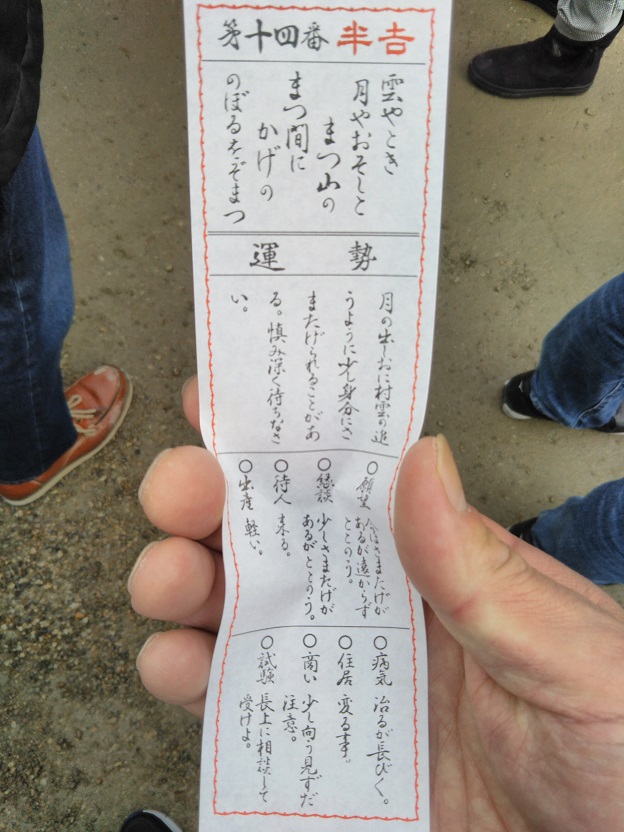 第十四番 半吉
雲やとき
月やおそしと
まつ山の
まつ間に
かげの
のぼるをぞまつ
運 勢
月の出しおに村雲の追
うように少し身分にさ
またげられることがあ
る。慎み深く待ちなさ
い。
○願望
さまたげが
あるが遠からず
ととのう。
○縁談
少しさまたげが
あるがととのう。
○待人 来る。
○出産 軽い。
○病気 治るが長びく。
○住居 変る事。
○商い 少し向う見ずだ
注意。
○試験 長上に相談して
受けよ。